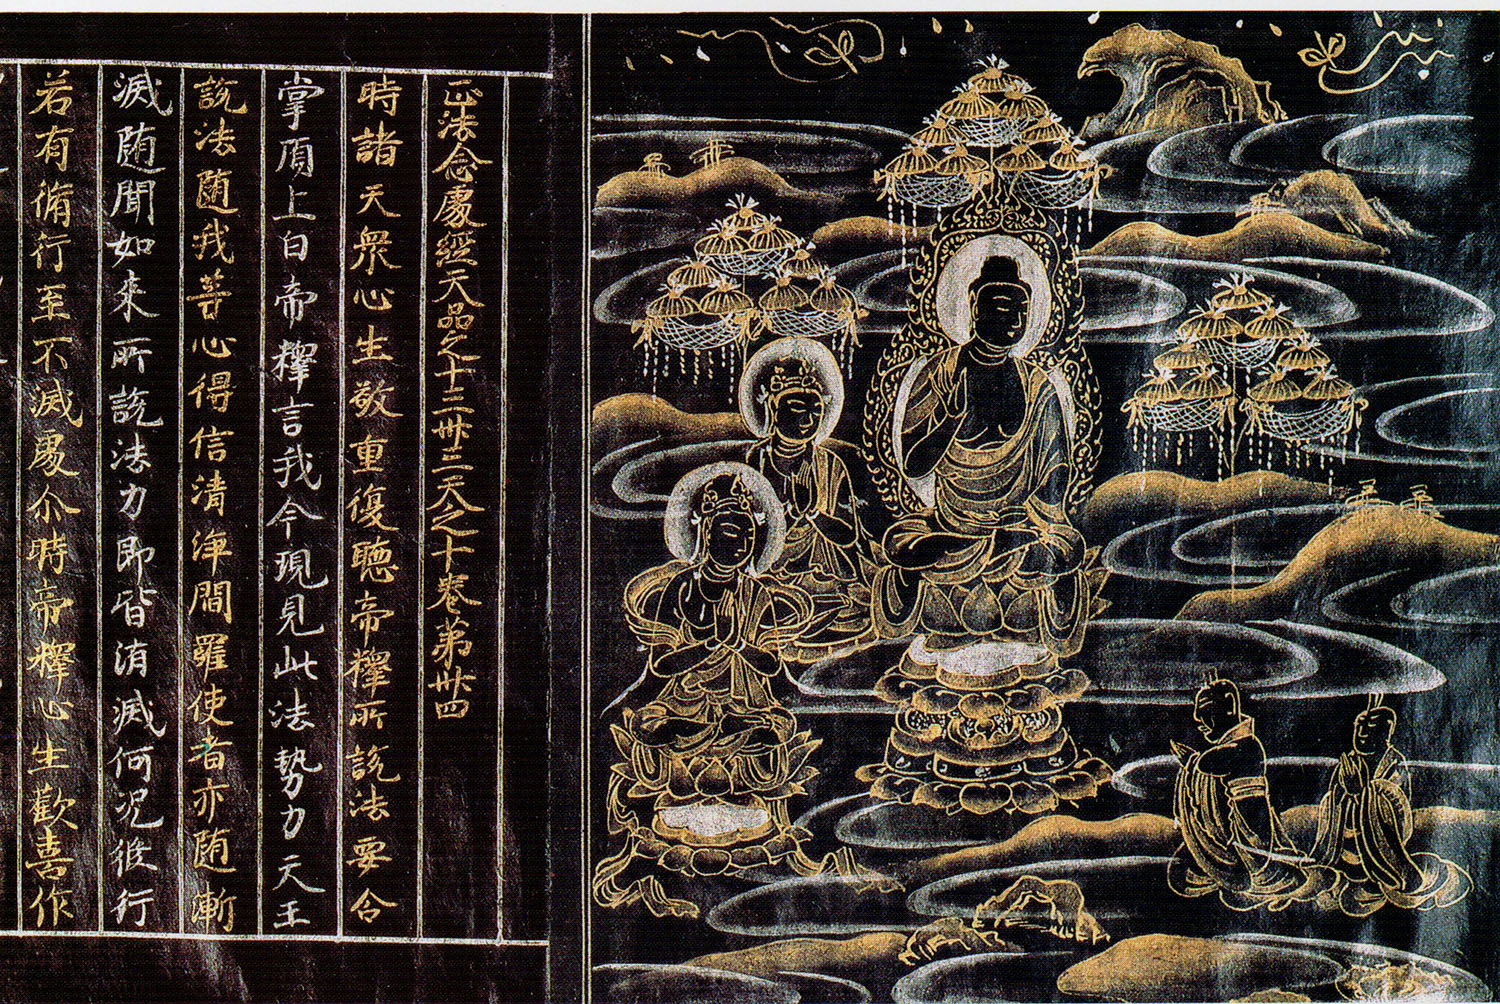 正法念處經天品之十三卅三天之十卷第卅四
時諸天衆心生敬重復聽帝釋所說法要合
掌頂上白帝釋言我今現見此法勢力天王
說法随我等心得信清淨閻羅使者亦随漸
滅随聞如来所說法力即皆消滅何况修行
若有修行至不滅處尒時帝釋心生歡喜作